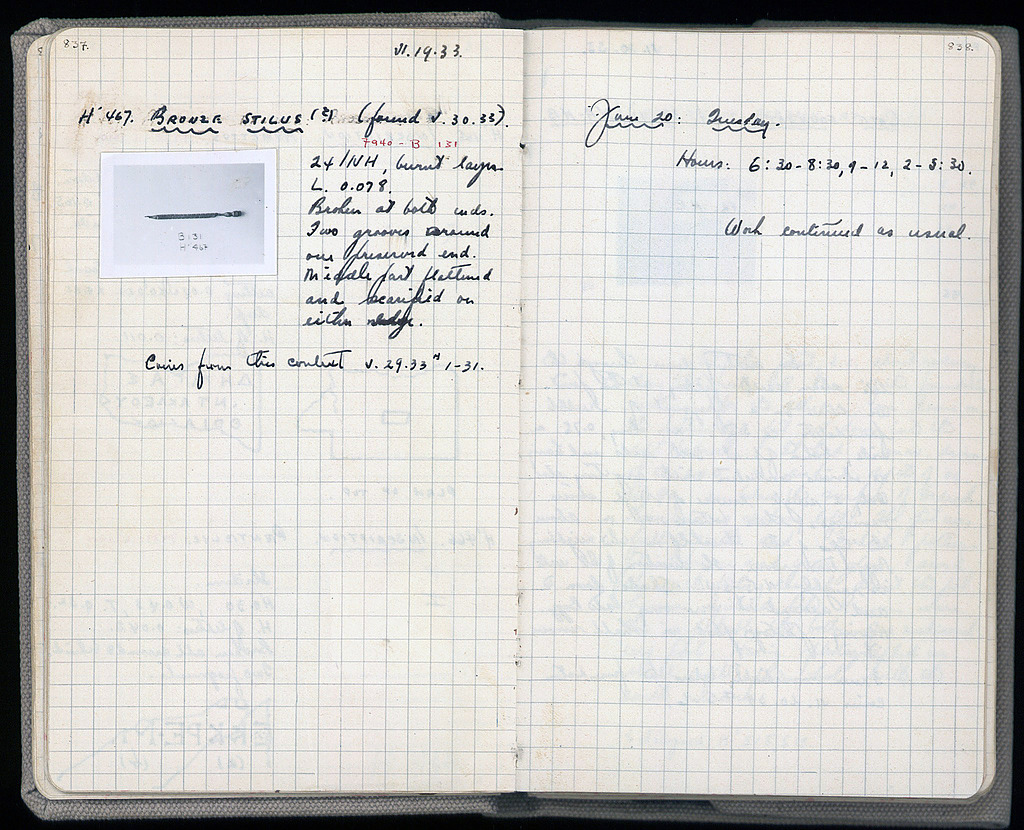 837.
VI.19.33.
H' 467. BRONZE STILUS (?) (found V.30.33).
7940 - B 131
24/NH, burnt layer.
L. 0.078.
Broken at both ends.
Two grooves around
one preserved end.
Middle part flattened
and scarified on
either edge.
B 131
H' 467
Coins from this context V.29.33 1-31.
838.
June 20: Tuesday.
Hours: 6:30-8:30, 9-12, 2-5:30.
Work continued as usual.